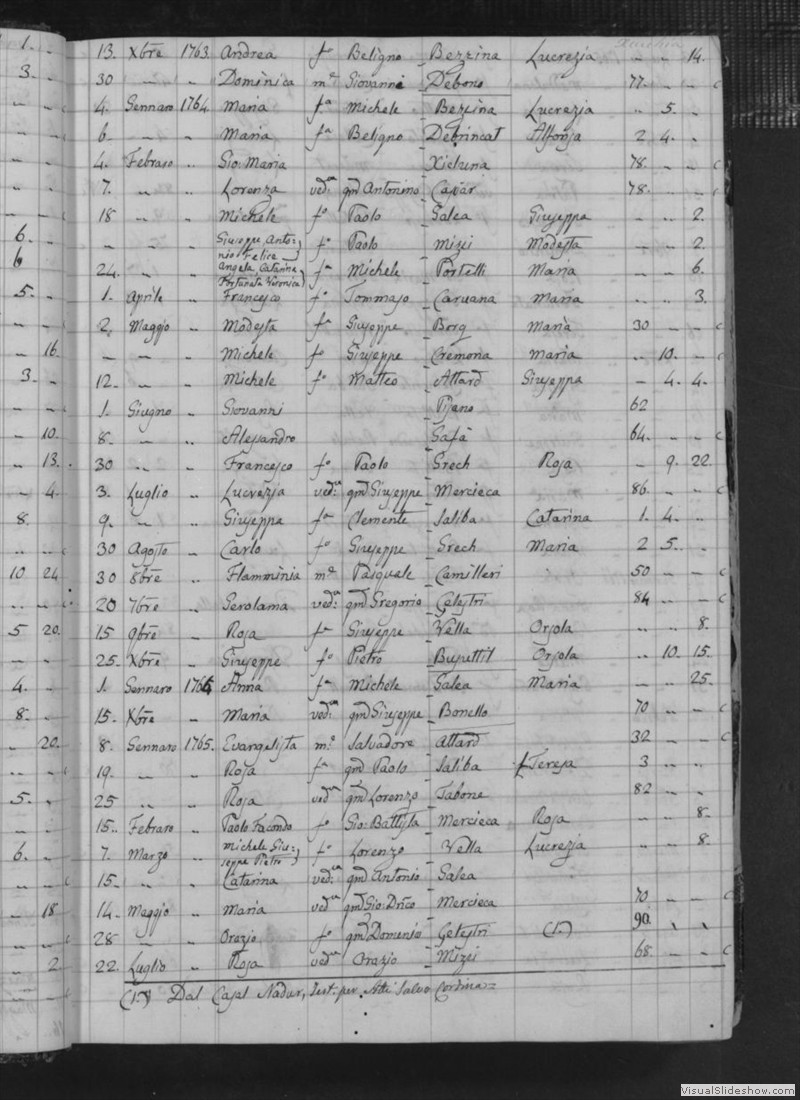 13. Xbre 1763. Andrea fo Beligno Bezzina Lucrezia — — 14.
30 — — Dominica me Giovanni Debono 77. — — c
4. Gennaro 1764. Maria fa Michele Bezzina Lucrezia .. 5. ..
6. — — Maria fa Beligno Debrincat Alfonsa 2 4. ..
4. Febraro .. Gio: Maria Xicluna 78. — — c
7. .. .. Lorenza veda qm Antonino Cavar 78. — — c
18 — — Michele fo Paolo Galea Giuseppa — .. 2.
— — .. Giuseppe, Anto=nio Felice fo Paolo Mizzi Modesta — .. 2.
24. .. .. Angela, Catarina Fortunata Veronica fa Michele Portelli Maria — .. 6.
1. Aprile .. Francesco fo Tommaso Caruana Maria .. .. 3.
2. Maggio .. Modesta fa Giuseppe Borg Maria 30 — — c
— — .. Michele fo Giuseppe Cremona Maria — 10. — c
12. — .. Michele fo Matteo Attard Giuseppa — 4. 4.
1. Giugno — Giovanni Pisano 62
8. — .. Alesandro Gafà 64. — — c
30 .. .. Francesco fo Paolo Grech Rosa — 9. 22.
3. Luglio .. Lucrezia veda qm Giuseppe Mercieca 86 — — c
9. — .. Giuseppa fa Clemente Saliba Catarina 1. 4. ..
30 Agosto — Carlo fo Giuseppe Grech Maria 2 5. ..
30 8bre .. Flamminia me Pasquale Camilleri 50 — — c
20 7bre .. Gerolama veda qm Gregorio Celestri 84 — — c
15 9bre — Rosa fa Giuseppe Vella Orsola .. .. 8.
25. Xbre .. Giuseppe fo Pietro Busuttil Orsola .. 10. 15.
1. Gennaro 1765 Anna fa Michele Galea Maria — — 25.
15. Xbre — Maria veda qm Giuseppe Bonello 70 — — c
8. Gennaro 1765. Evangelista mo Salvadore Attard 32 — — c
19. — .. Rosa fa qm Paolo Saliba Teresa 3 — ..
25 .. .. Rosa veda qm Lorenzo Tabone 82 — — c
15.. Febraro .. Paolo Facondo fo Gio: Battista Mercieca Rosa — — 8.
7. Marzo .. Michele Giu=seppe Pietro fo Lorenzo Vella Lucrezia .. .. 8.
15. .. .. Catarina veda qm Antonio Galea
14. Maggio .. Maria veda qm Gio: Drico Mercieca 70. — — c
28 — .. Orazio fo qm Domenico Celestri 90.
22. Luglio .. Rosa veda Orazio Mizzi 68. — — c
Dal Casal Nadur, per Atti Salvo
VisualSlideshow.com